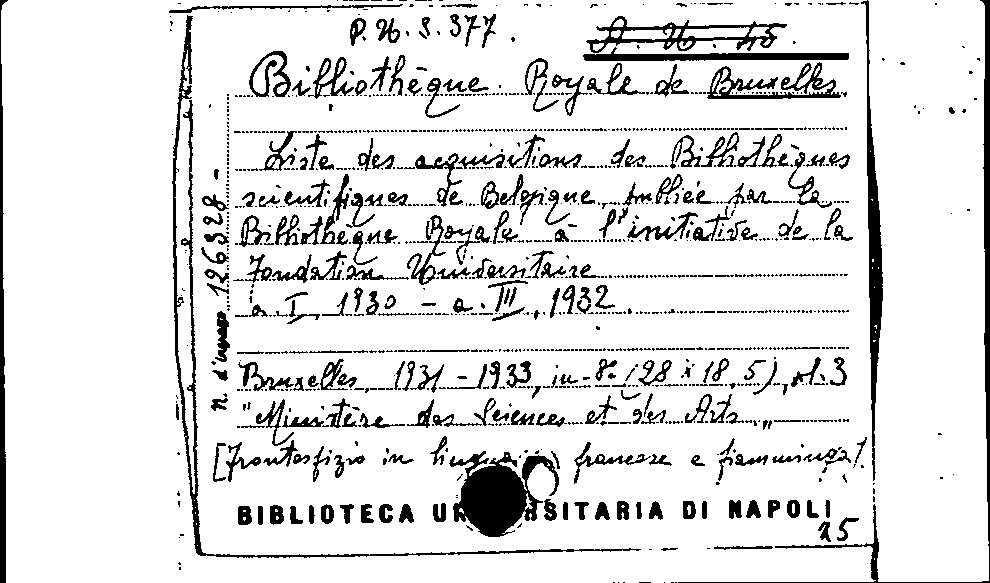 P. U. S. 377.
A. U. 45.
Bibliothèque Royale de Bruxelles.
Liste des acquisitions des Bibliothèques
scientifiques de Belgique, publiée par la
Bibliothèque Royale à l'initiative de la
Fondation Universitaire
a. I, 1930 - a. III, 1932.
Bruxelles, 1931 - 1933, in-8° (28 x 18,5), vl. 3
"Ministère des Sciences et des Arts„
[Frontespizio in lingua francese e fiamminga].
N. d'ingresso 126328 -
BIBLIOTECA UNIVERSITARIA DI NAPOLI
25